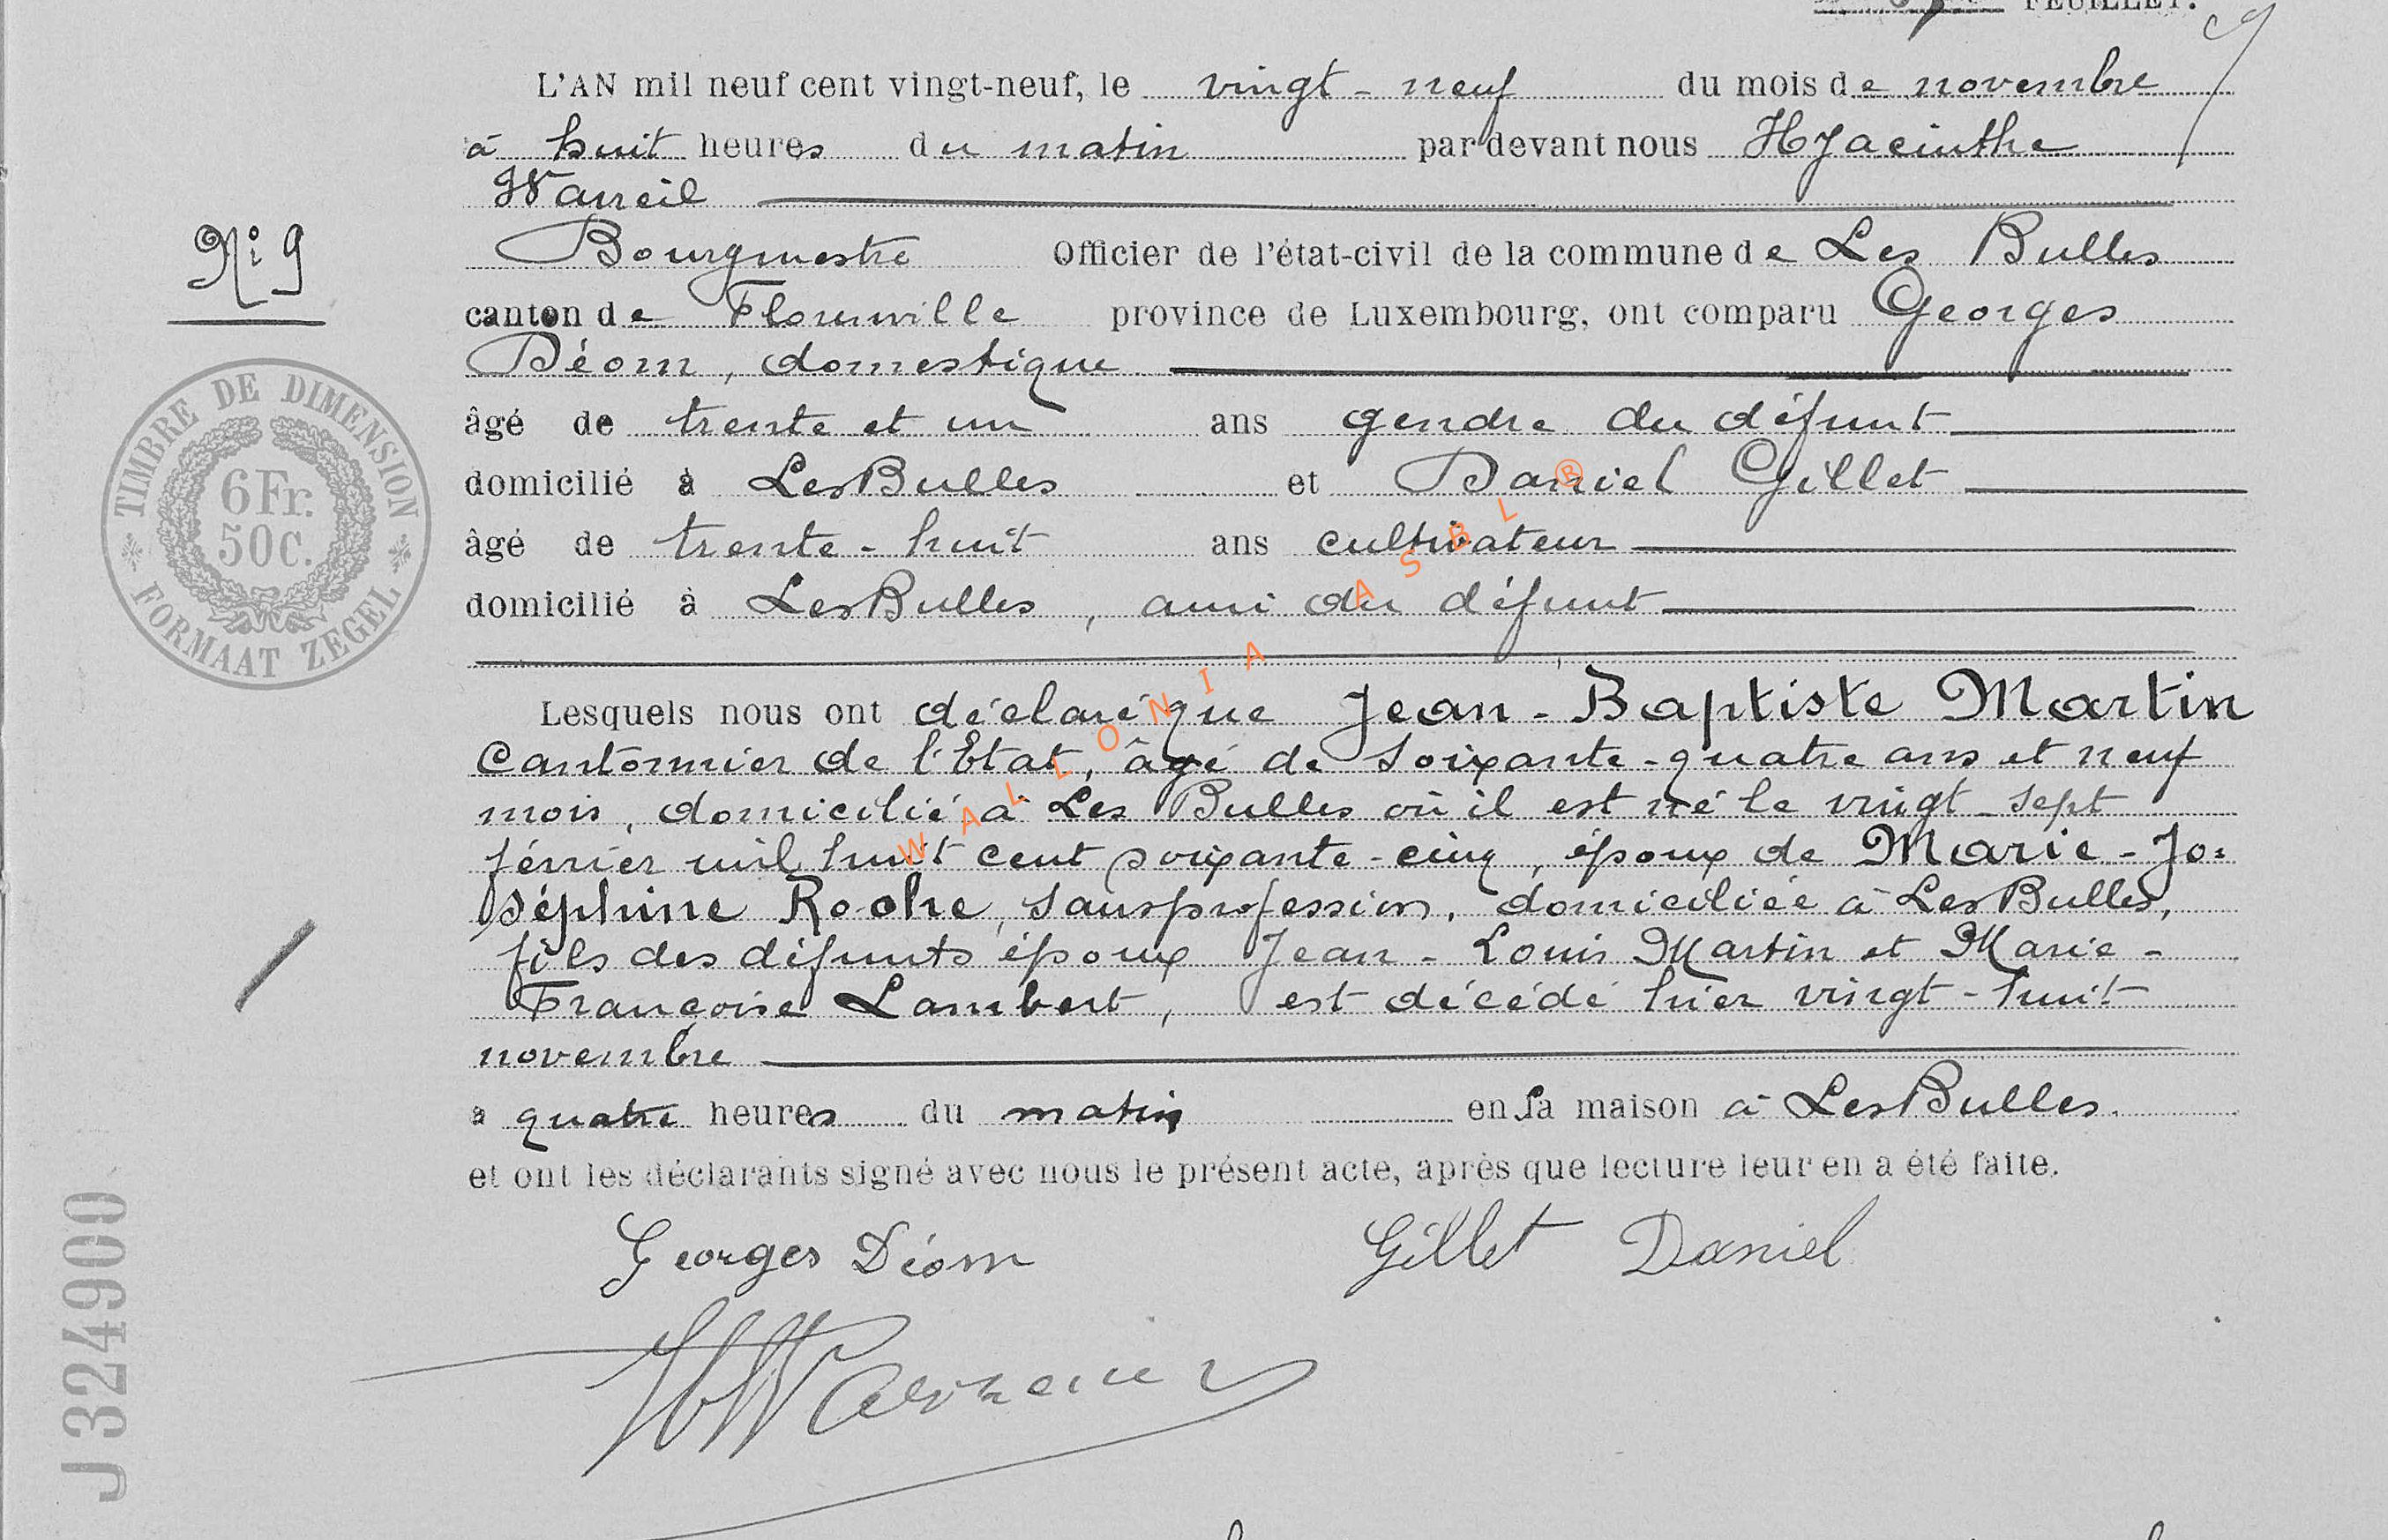 FEUILLET.
L'AN mil neuf cent vingt-neuf, le vingt-neuf du mois de novembre
à huit heures du matin par devant nous Hyacinthe
Warreil
Bourgmestre Officier de l'état-civil de la commune de Les Bulles
N° 9
canton de Florenville province de Luxembourg, ont comparu Georges
Déom, domestique
âgé de trente et un ans gendre du défunt
domicilié à Les Bulles et Daniel Gillet
âgé de trente-huit ans cultivateur
domicilié à Les Bulles, ami du défunt
TIMBRE DE DIMENSION
6 Fr.
50 C.
FORMAAT ZEGEL
Lesquels nous ont déclaré que Jean-Baptiste Martin
Cantonnier de l'Etat, âgé de soixante-quatre ans et neuf
mois, domicilié à Les Bulles où il est né le vingt-sept
février mil huit cent soixante-cinq, époux de Marie-Jo=
séphine Roche, sans profession, domiciliée à Les Bulles,
fils des défunts époux Jean-Louis Martin et Marie-
Françoise Lambert, est décédé hier vingt-huit
novembre
a quatre heures du matin en sa maison à Les Bulles.
et ont les déclarants signé avec nous le présent acte, après que lecture leur en a été faite.
Georges Déom Gillet Daniel
J 324900
WALLONIA ASBL ®